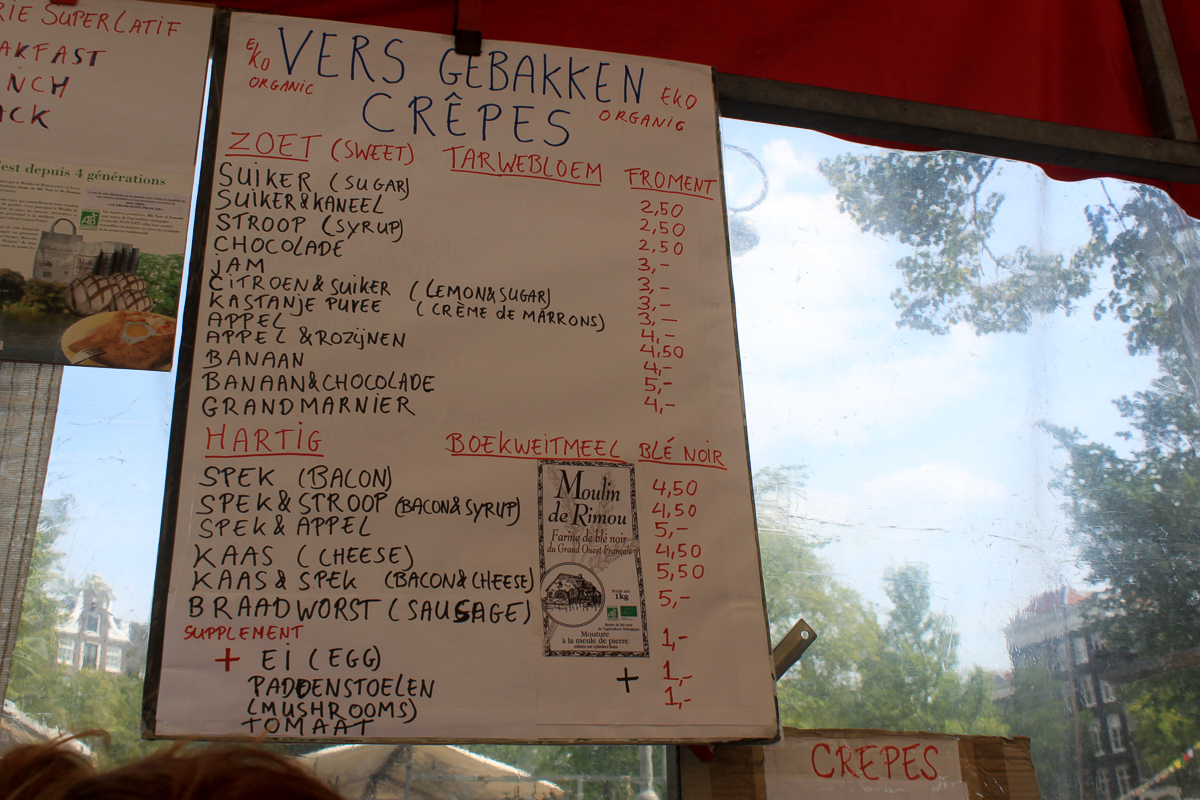 RIE SUPERLATIF
AKFAST
NCH
ACK
est depuis 4 générations
AB
EKO
ORGANIC
VERS GEBAKKEN
CRÊPES
EKO
ORGANIC
ZOET (SWEET) TARWEBLOEM FROMENT
SUIKER (SUGAR) 2,50
SUIKER&KANEEL 2,50
STROOP (SYRUP) 2,50
CHOCOLADE 3,-
JAM 3,-
CITROEN&SUIKER (LEMON&SUGAR) 3,-
KASTANJE PUREE (CRÈME de MARRONS) 3,-
APPEL 4,-
APPEL &ROZIJNEN 4,50
BANAAN 4,-
BANAAN&CHOCOLADE 5,-
GRANDMARNIER 4,-
HARTIG BOEKWEITMEEL BLÉ NOIR
SPEK (BACON) 4,50
SPEK&STROOP (BACON&SYRUP) 4,50
SPEK&APPEL 5,-
KAAS (CHEESE) 4,50
KAAS& SPEK (BACON&CHEESE) 5,50
BRAADWORST (SAUSAGE) 5,-
SUPPLEMENT
+ EI (EGG) 1,-
PADDENSTOELEN + 1,-
(MUSHROOMS) 1,-
TOMAAT
Moulin
de Rimou
Farine de blé noir
du Grand Ouest Français
1kg
AB
Mouture
à la meule de pierre
CREPES